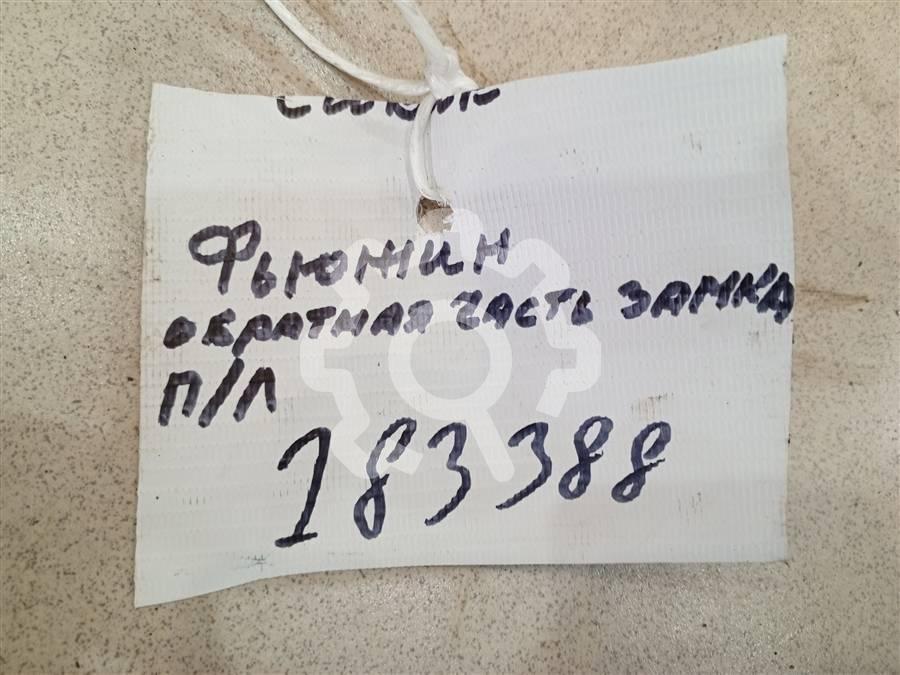 Фьюжин
обратная часть замка
п/л
183388